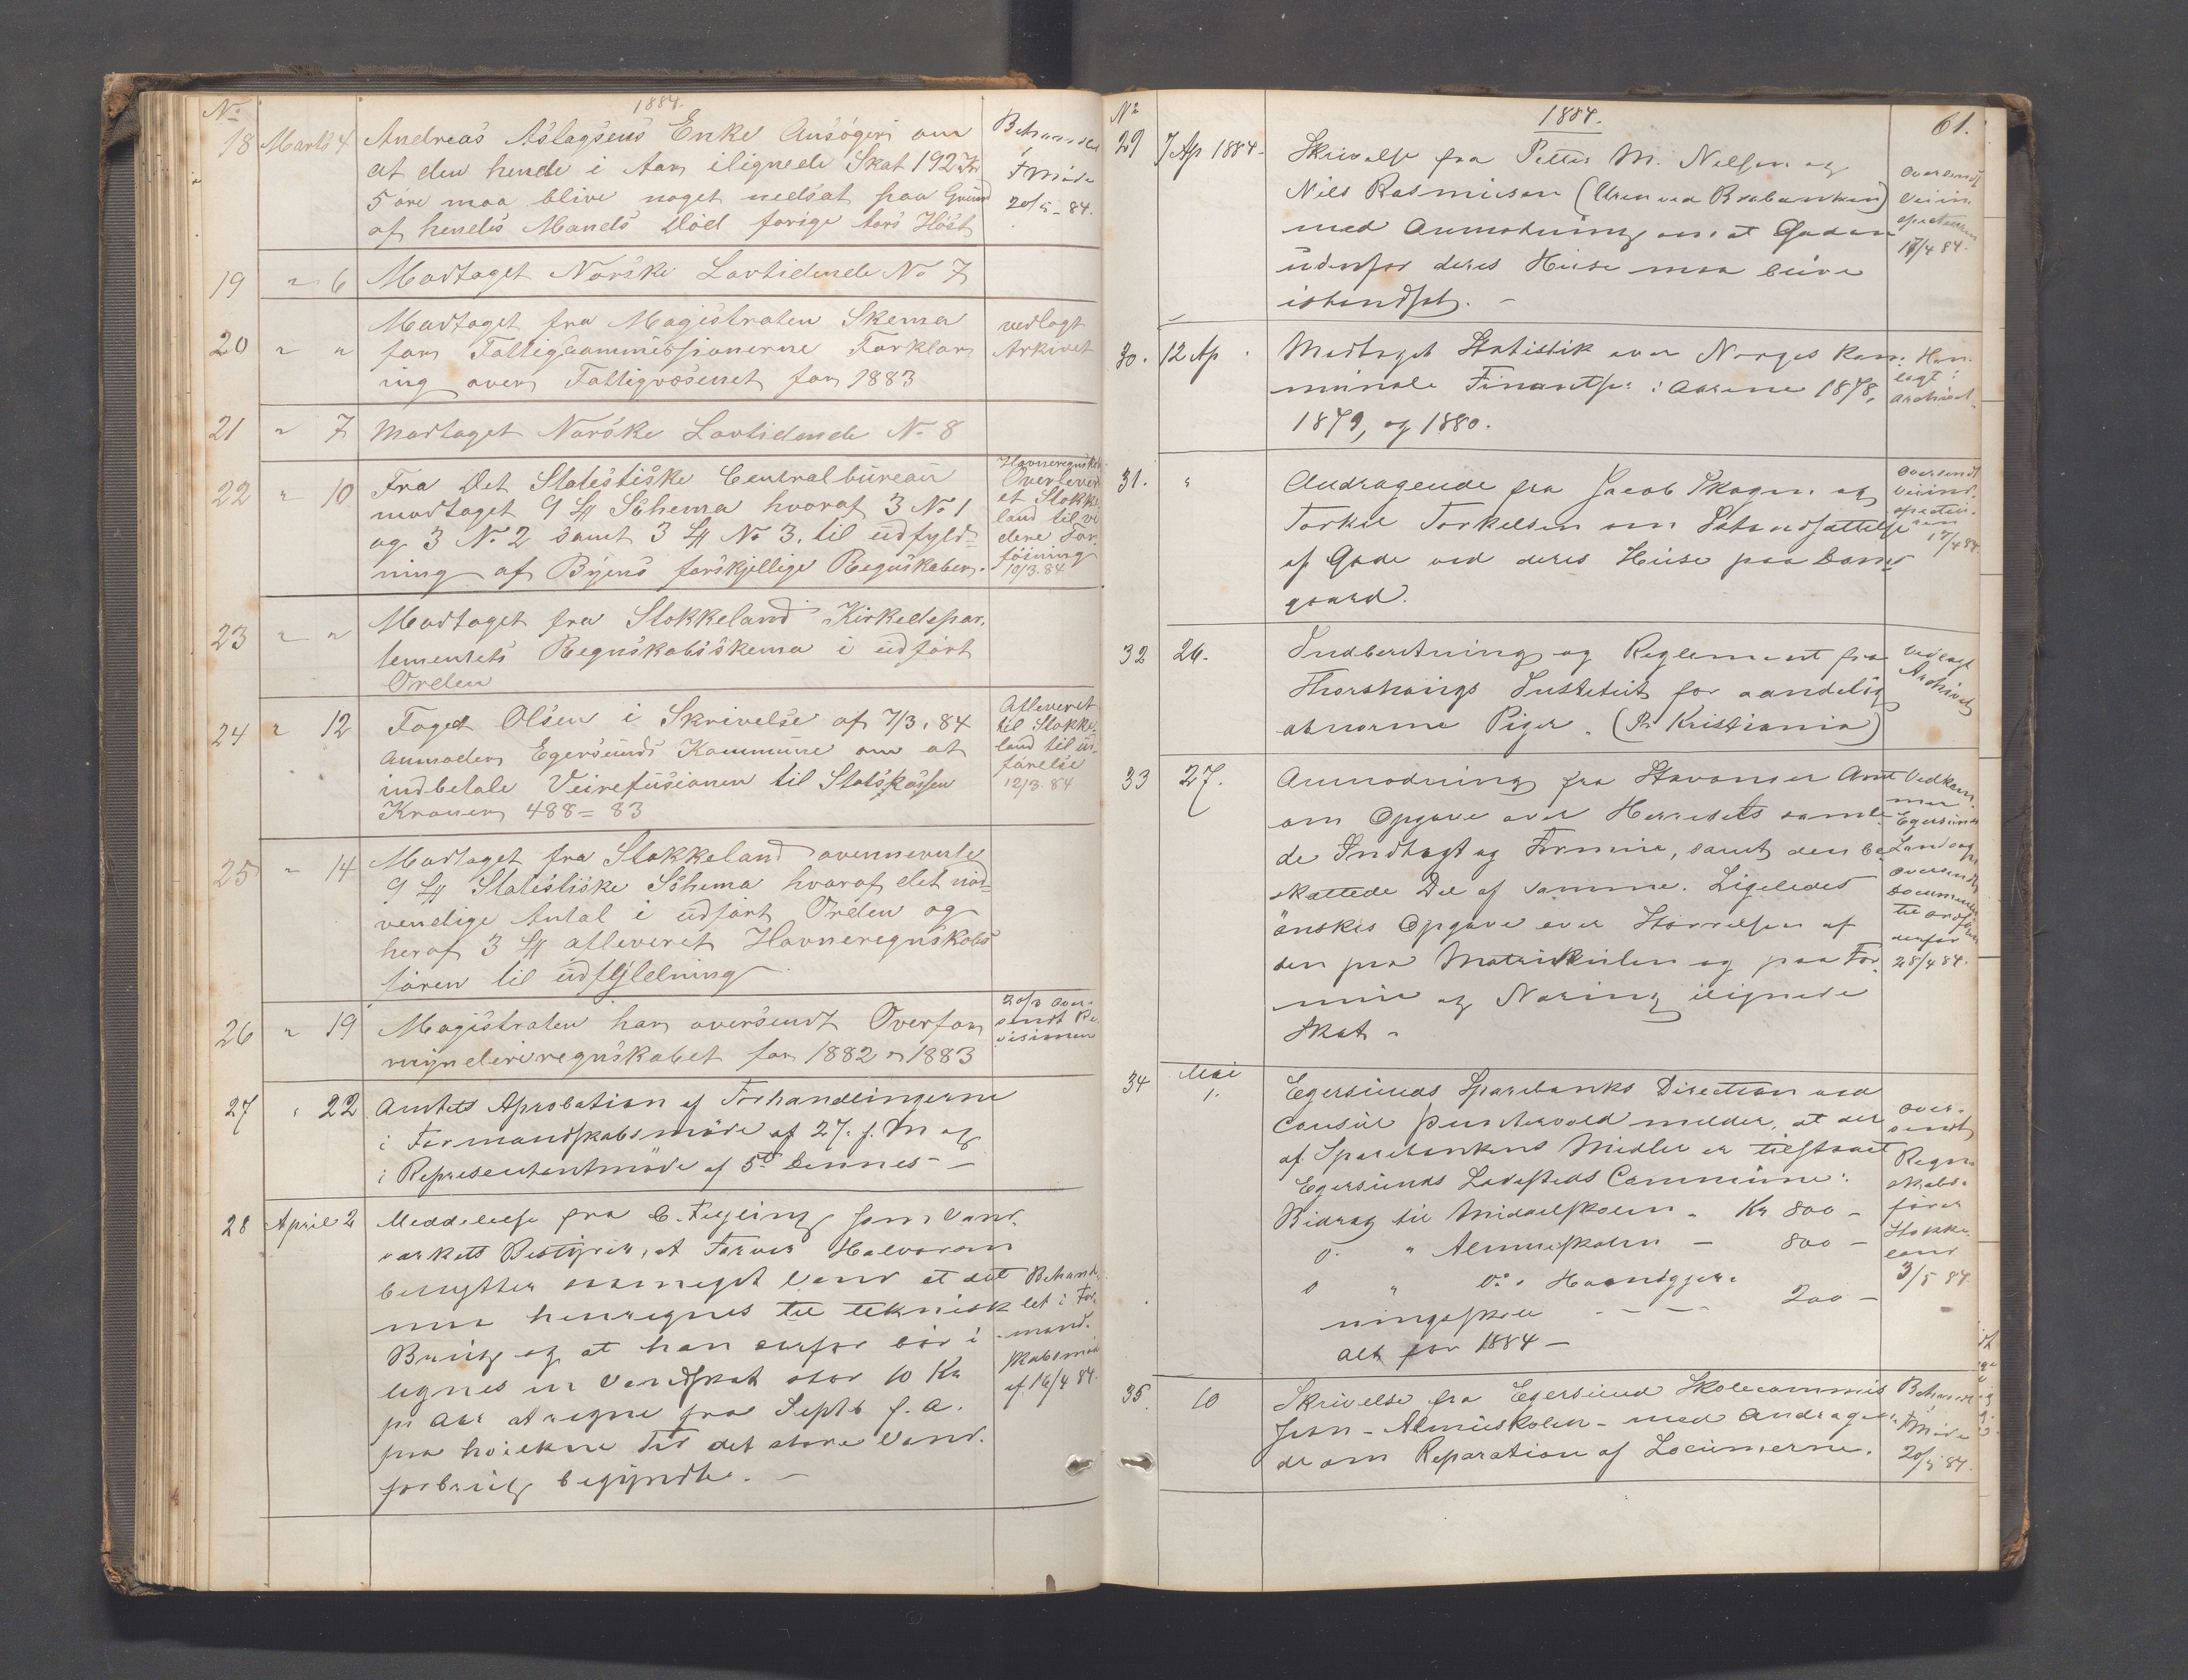 No
1884.
18 Marts 4 Andreas Aslagsens Enke Ansøger om
at den hende i Aar ilignede Skat 192 Kr
5 øre maa blive noget nedsat paa Grund
af hendes Mands Död forige Aars Höst
Behandlet
i Möde
20/5-84.
19 " 6 Modtaget Norske Lovtidende No 7
20 " " Modtaget fra Magistraten Skema
for Fattigcommissionerne Forklar
ing over Fattigvæsenet for 1883
vedlagt
Arkivet
21 " 7 Modtaget Norske Lovtidende No 8
22 " 10 Fra Det Statestiske Centralbureau
modtaget 9 St Schema hvoraf 3 No 1
og 3 No 2 samt 3 St No 3. til udfyld=
ning af Byens forskjellige Regnskaber.
Havneregnskab
Overlever
et Stokke
land til vi
dere For
föining
10/3.84
23 " " Modtaget fra Stokkeland Kirkedepar,
tementets Regnskabsskema i udfört
Orden
24 " 12 Foged Olsen i Skrivelse af 7/3. 84
anmoder Egersunds Kommune om at
indbetale Veirefusionen til Statskassen
Kroner 488=83
Afleveret
til Stokke,
land til ud,
förelse
12/3.84
25 " 14 Modtaget fra Stokkeland ovennevnte
9 St Statestiske Schema hvoraf det nöd=
vendige Antal i udfört Orden og
heraf 3 St afleveret Havneregnskabs
fören til udfyldning
26 " 19 Magistraten har oversendt Overfor
mynderiregnskabet for 1882 og 1883
20/3 over-
sendt Re,
visionen
27 " 22 Amtets Aprobation af Forhandlingerne
i Formandskabsmöde af 27. f. M og
i Representantmöde af 5d dennes -
28 April 2 Meddelelse fra C. Feyling som Vand,
værkets Bestyrer, at Farver Halvorsen
benytter saameget Vand at det
maa henregnes til teknisk
Brug og at han derfor bör i
lignes en Vandskat stor 10 Kr
pr Aar at regne fra Septb f. A.
paa hvilken Tid det store Vand.
forbrug begyndte. -
Behand,
let i For,
mand.
skabsmöd
af 16/4 84.
No
1884.
61.
29 7 Ap 1884 - Skrivelse fra Petter M. Nelsen og
Nils Rasmusen (Uren ved Brobanken)
med Anmodning om at Gaden
udenfor deres Huse maa blive
istandsat. -
Oversendt
Veiin
spectøren
17/4 84.
30. 12 Ap. Modtaget Statistik over Norges Kom,
munale Finantser i Aarene 1878,
1879, og 1880.
Hen
lagt i
Archivet
31. " Andragende fra Jacob Skogen og
Torkel Torkelsen om Istandsættelse
af Gade ved deres Huse paa Dams
gaard.
Oversendt
Veiind.
specteu.
ren
17/4 84.
32 26. Indberetning og Reglement fra
Thorshaugs Institut for aandelig
abnorme Piger. (Pr Kristiania)
Vedlagt
Archivet
33 27. Anmodning fra Stavanger Amt
om Opgave over Herredets samle
de Indtægt og Formue, samt den be
skattede Del af samme. Ligeledes
önskes Opgave over Störrelsen af
den paa Matrikulen og paa For,
mue og Næring ilignede
Skat -
Vedkom.
mer
Egersunds
Landsogn
oversendt
Documentet
til ordförer
derfor
28/4 84.
34 Mai 1. Egersunds Sparebanks Direction ved
Consul Puntervold melder, at der
af Sparebankens Midler er tilstaaet
Egersunds Ladesteds Commune:
Bidrag til Middelskolen - Kr 800 -
Do " Almueskolen - 800 -
Do " Do. Haandgjer.
ningsskole - - - 200 -
Alt for 1884 -
Over-
sendt
Regn
skabs.
förer
Stokke,
land
3/5 84.
35. 10 Skrivelse fra Egersund Skolecommis
sion - Almueskolen - med Andragen
de om Reparation af Locummerne.
Behandl
i Möde
20/5 84.